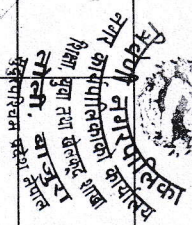 त्रिवेणी नगरपालिका
नगर कार्यपालिकाको कार्यालय
शिक्षा युवा तथा खेलकुद शाखा
तोली, बाजुरा
सुदूरपश्चिम प्रदेश नेपाल